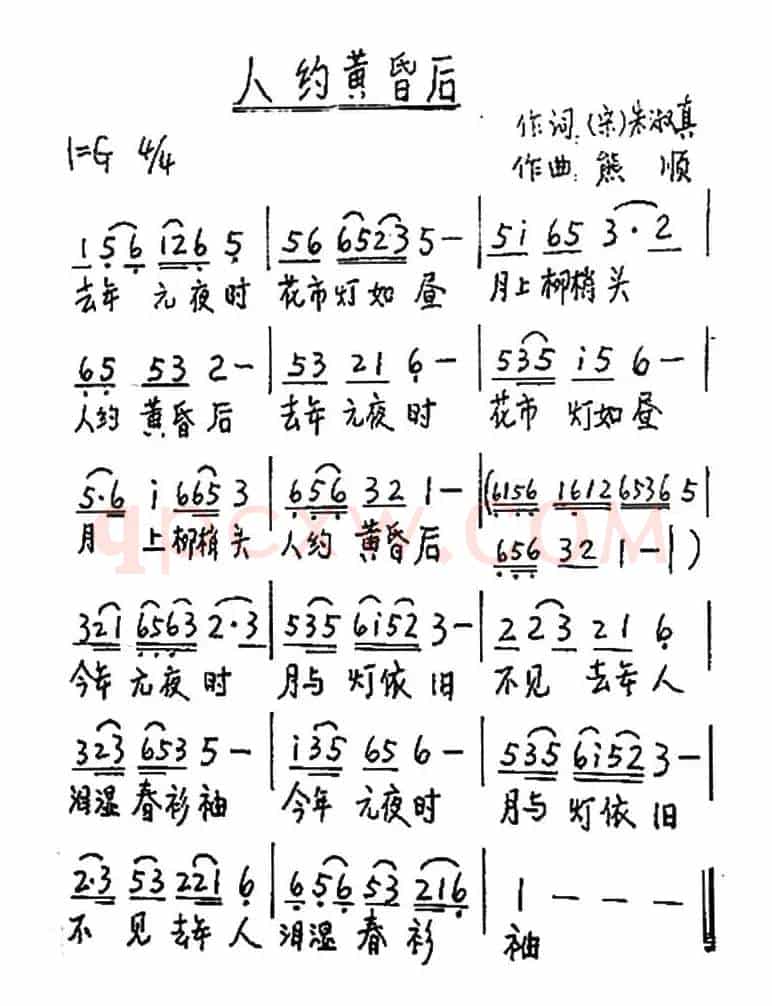 人约黄昏后
作词:(宋)朱淑真
1=G 4/4
作曲:熊 顺
1 5 6 i 2 6 5 | 5 6 6 5 2·3 5 - | 5 i 6 5 3· 2 |
去年 元夜时 花市灯如昼 月上柳梢头
6 5 5 3 2 - | 5 3 2 1 6 - | 5 3 5 i 5 6 - |
人约 黄昏后 去年 元夜时 花市 灯如昼
5·6 i 6 6 5 3 | 6 5 6 3 2 1 - | (6 1 5 6 1 6 1 2 6 5 3 6 5 |
月 上柳梢头 人约 黄昏后
6 5 6 3 2 1 - | )
qpcxw.com
3 2 1 6 5 6 3 2·3 | 5 3 5 6 i 5 2 3 - | 2 2 3 2 1 6 |
今年 元夜时 月与 灯依旧 不见 去年人
3 2 3 6 5 3 5 - | i 3 5 6 5 6 - | 5 3 5 6 i 5 2 3 - |
泪湿 春衫袖 今年 元夜时 月与 灯依旧
2·3 5 3 2 2 1 6 | 6 5 6 5 3 2 1 6 | 1 - - - ‖
不 见 去年人 泪湿 春 衫 袖